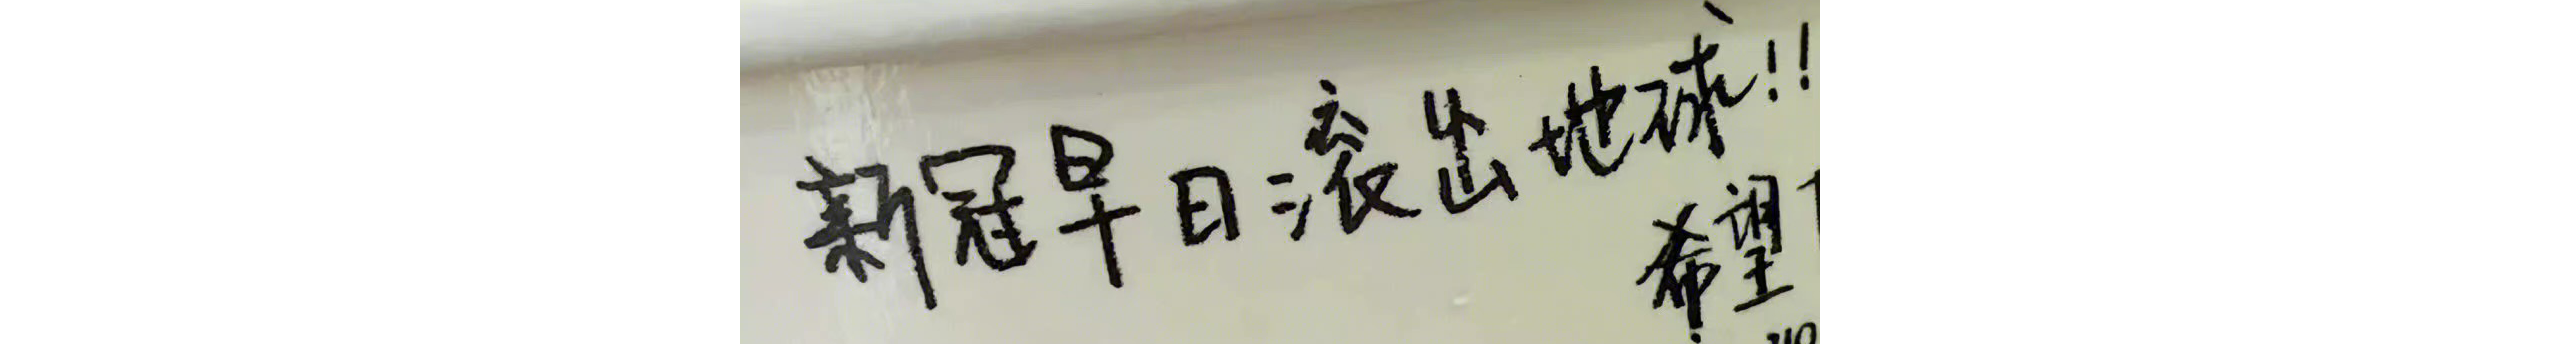 新冠早日滚出地球!!
希望